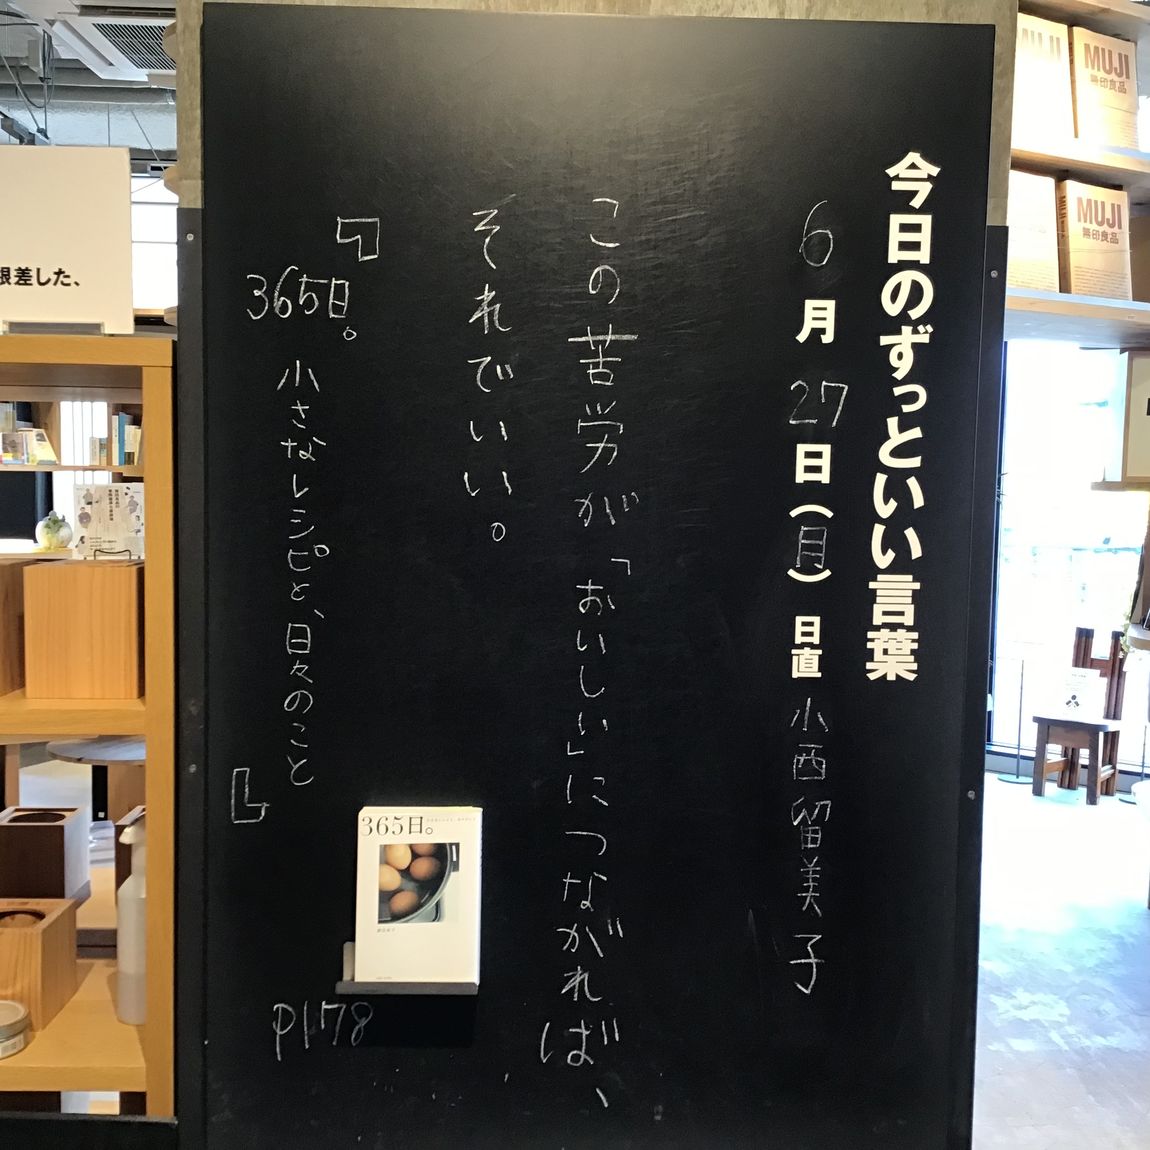 今日のずっといい言葉
6月27日（月）日直 小西留美子
この苦労が「おいしい」につながれば、
それでいい。
『365日。小さなレシピと、日々のこと』
P178
365日。
根差した、
MUJI
無印良品
MUJI
無印良品